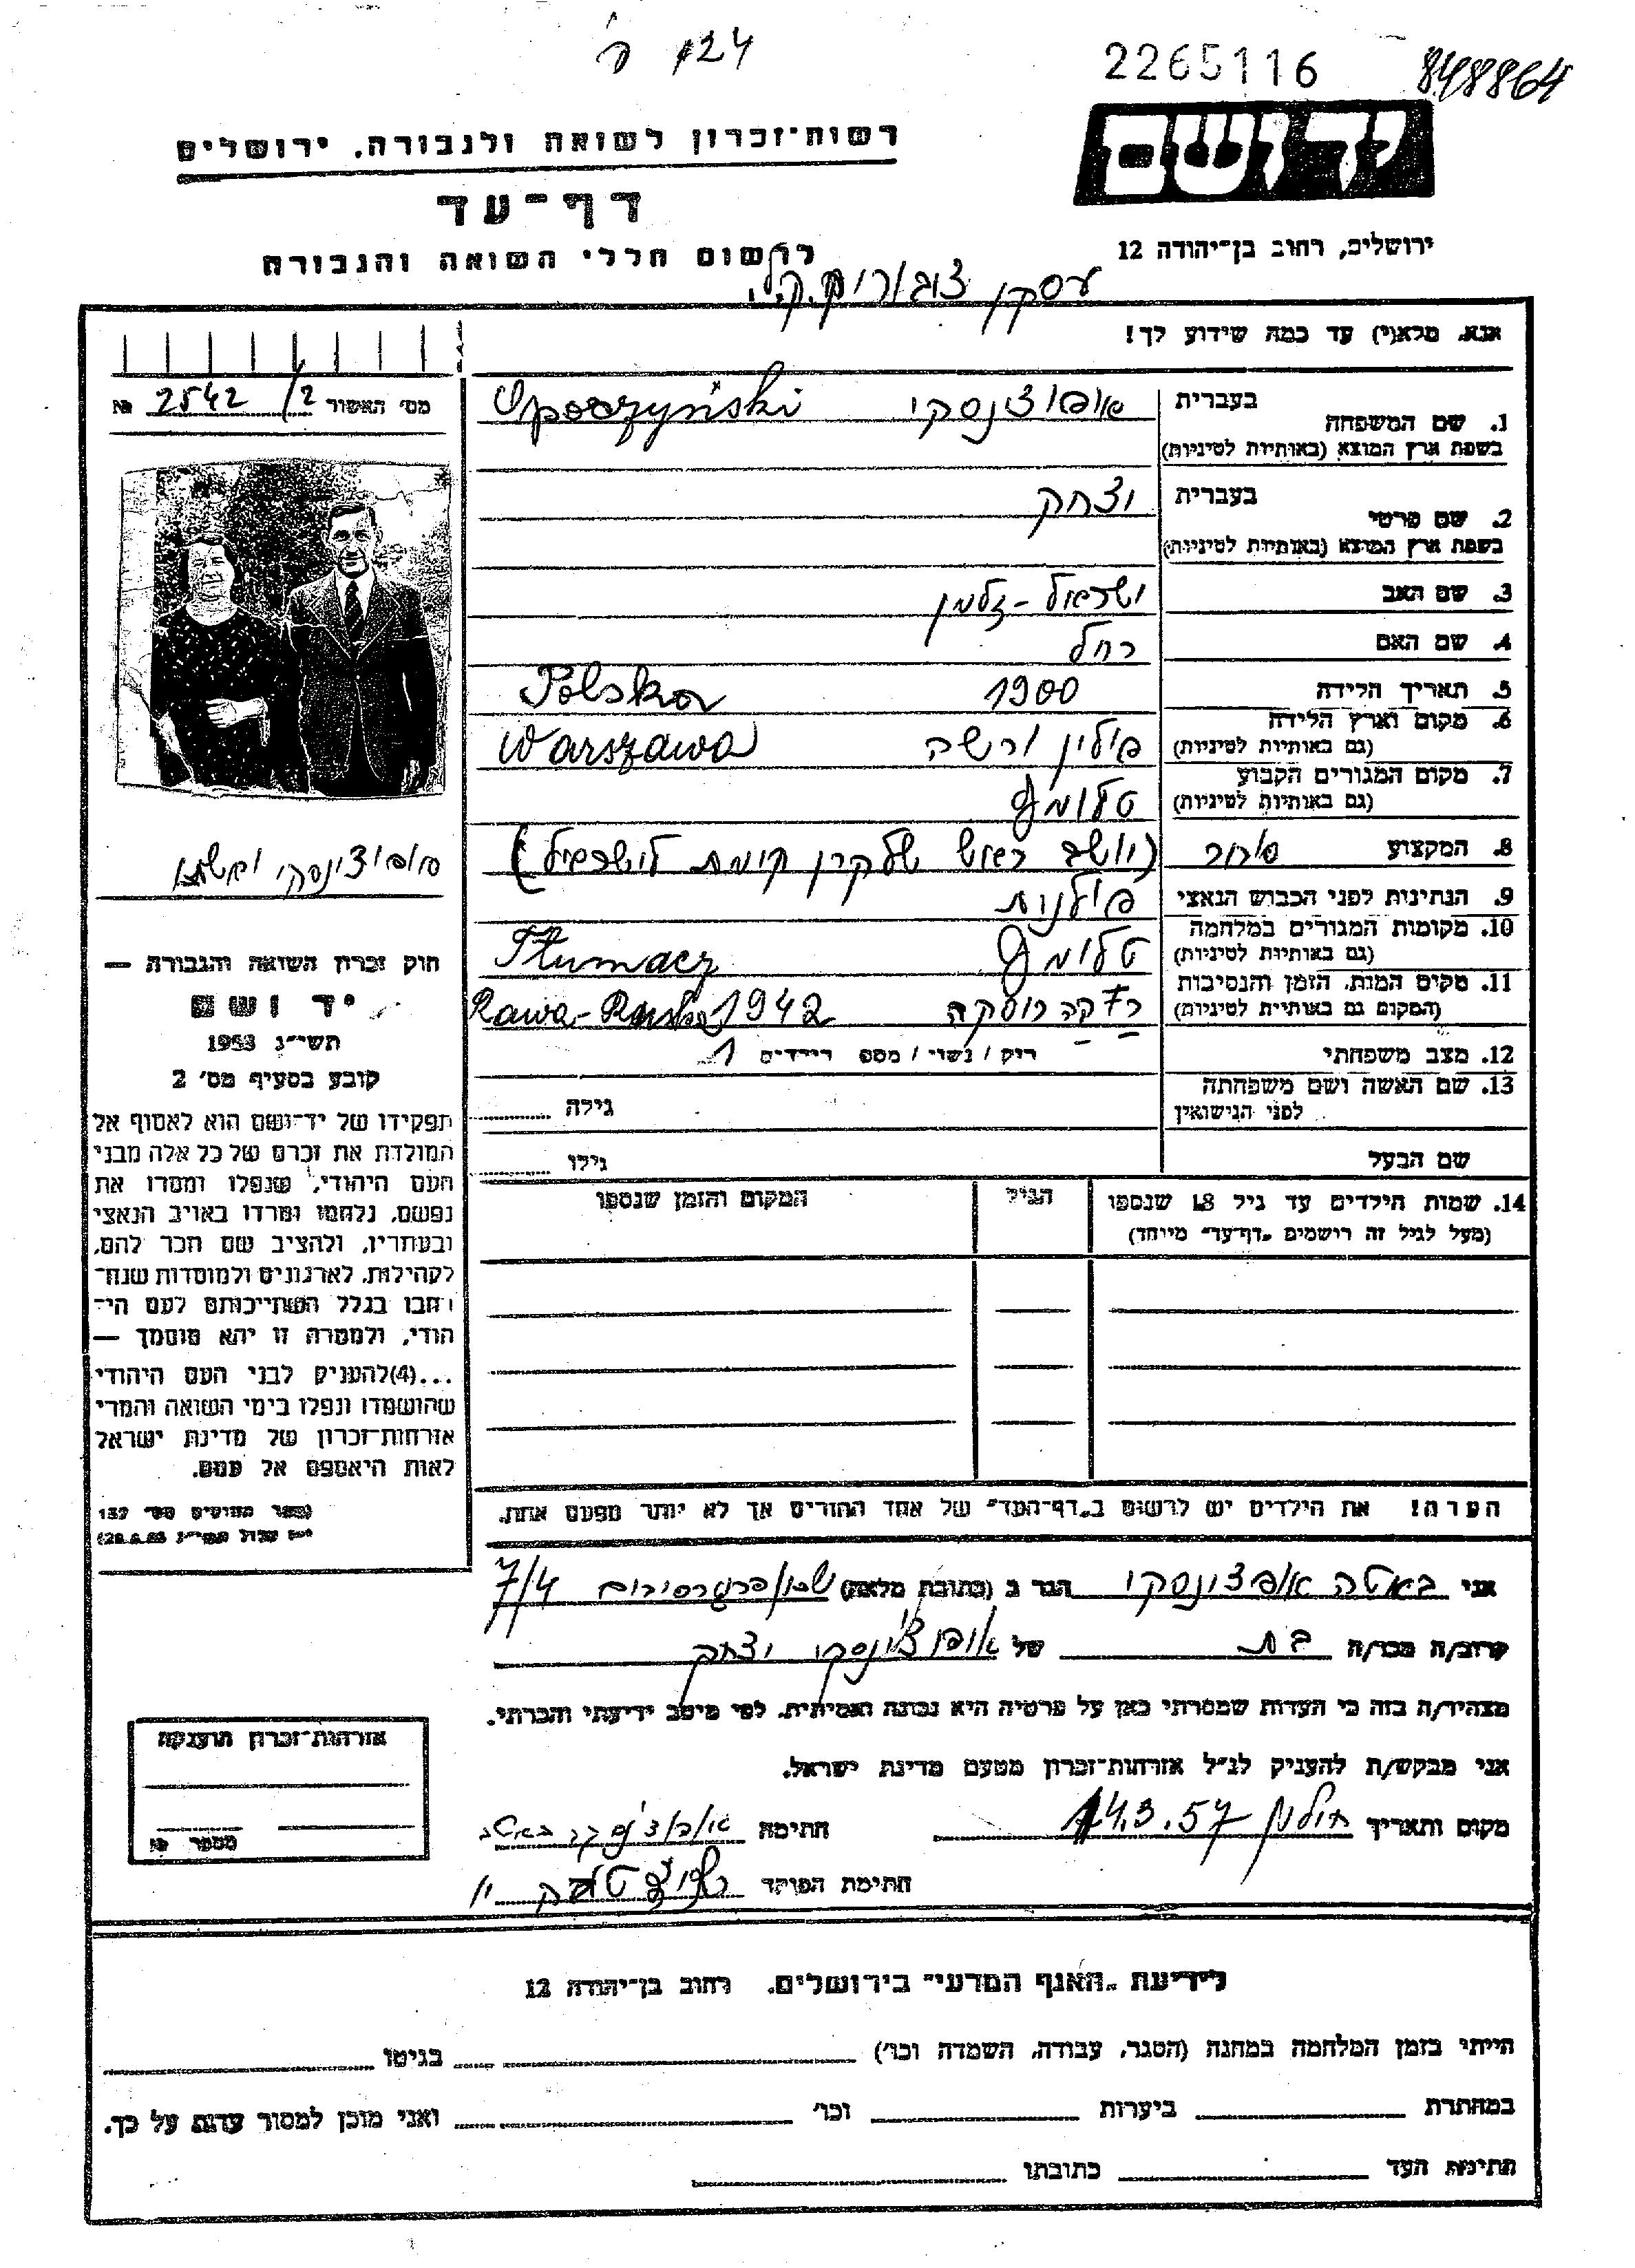 124
2265116
848864
רשות־זכרון לשואה ולגבורה, ירושלים
יד ושם
דף־עד
לרשום חללי השואה והגבורה
ירושלים, רחוב בן־יהודה 12
עסקן ציבורי ק.ק.ל.
אנא, מלא(י) עד כמה שידוע לך!
מס׳ האשור 2542/2 №
1. שם המשפחה
בעברית אופוצ׳ינסקי Opoczyński
בשפת ארץ המוצא (באותיות לטיניות)
2. שם פרטי
בעברית יצחק
בשפת ארץ המוצא (באותיות לטיניות)
3. שם האב ישראל־זלמן
4. שם האם רחל
5. תאריך הלידה 1900 Polska
6. מקום וארץ הלידה (גם באותיות לטיניות) פולין ורשה Warszawa
7. מקום המגורים הקבוע (גם באותיות לטיניות) טלומץ
8. המקצוע סוחר (יושב ראש של קרן קימת לישראל)
9. הנתינות לפני הכבוש הנאצי פולנית
10. מקומות המגורים במלחמה (גם באותיות לטיניות) טלומץ Tłumacz
11. מקום המות, הזמן והנסיבות (המקום גם באותיות לטיניות) רווה רוסקה 1942 Rawa-Ruska
12. מצב משפחתי רוק / נשוי / מספר הילדים 1
13. שם האשה ושם משפחתה לפני הנישואין גילה
שם הבעל גילו
14. שמות הילדים עד גיל 18 שנספו
(מעל לגיל זה רושמים „דף־עד״ מיוחד)
הגיל
המקום והזמן שנספו
הערה! את הילדים יש לרשום ב„דף־העד״ של אחד ההורים אך לא יותר מפעם אחת.
אופוצ׳ינסקי ואשתו
חוק זכרון השואה והגבורה —
יד ושם
תשי״ג 1953
קובע בסעיף מס׳ 2
תפקידו של יד־ושם הוא לאסוף אל
המולדת את זכרם של כל אלה מבני
העם היהודי, שנפלו ומסרו את
נפשם, נלחמו ומרדו באויב הנאצי
ובעוזריו, ולהציב שם וזכר להם,
לקהילות, לארגונים ולמוסדות שנח־
רבו בגלל השתייכותם לעם הי־
הודי, ולמטרה זו יהא מוסמך —
...(4)להעניק לבני העם היהודי
שהושמדו ונפלו בימי השואה והמרי
אזרחות־זכרון של מדינת ישראל
לאות היאספם אל עמם.
(ספר החוקים מס׳ 132
אני באטה אופוצ׳ינסקי הגר ב (כתובת מלאה) 7/4
קרוב/ה מכר/ה בת של אופוצ׳ינסקי יצחק
מצהיר/ה בזה כי העדות שמסרתי כאן על פרטיה היא נכונה ואמיתית, לפי מיטב ידיעתי והכרתי.
אני מבקש/ת להעניק לנ״ל אזרחות־זכרון מטעם מדינת ישראל.
מקום ותאריך חולון 14.3.57 חתימה אופוצ׳ינסקי באטה
חתימת הפוקד
אזרחות־זכרון הוענקה
מספר №
לידיעת „האגף המדעי״ בירושלים, רחוב בן־יהודה 12
הייתי בזמן המלחמה במחנה (הסגר, עבודה, השמדה וכו׳) בגיטו
במחתרת ביערות וכו׳ ואני מוכן למסור עדות על כך.
חתימת העד כתובתו